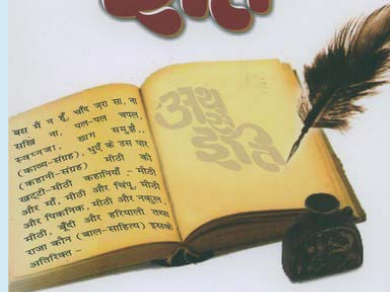 बस मैं न हूँ, चाँद ज़रा सा, ना
सखि ना, पल-पल चपल,
स्वप्नजा, खाग समूझै,,
(काव्य-संग्रह), धुएँ के उस पार
(कहानी-संग्रह) मीठी की
खट्टी-मीठी कहानियाँ - मीठी
और माँ, मीठी और चिंपू, मीठी
और पिकनिक, मीठी और नकुल,
मीठी, बूँदी और हरियाली तथा
राजा कौन (बाल-साहित्य) इसके
अतिरिक्त -
अथ
से
इति